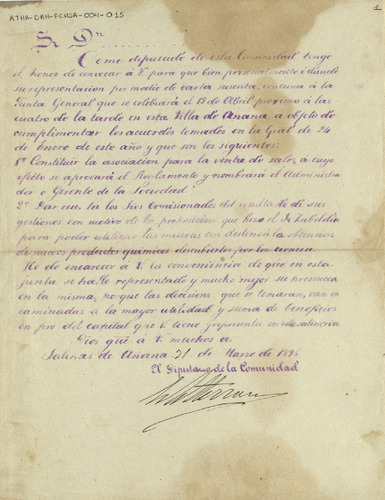 ATHA-DAH-FCHSA-004-015
1
Sr Dn
Como diputado de esta Comunidad tengo
el honor de convocar á V. para que bien personalmente ó dando
su representación por medio de carta suscrita, concurra á la
Junta General que se celebrará el 15 de Abril próximo á las
cuatro de la tarde en esta Villa de Añana, á objeto de
cumplimentar los acuerdos tomados en la Gral de 24
de Enero de este año y que son los siguientes:
1º Constituir la asociación para la venta de sales, á cuyo
efecto se aprovará el Reglamento y nombrará el Administra
dor ó Gerente de la Sociedad
2º Dar cuenta los Sres Comisionados del resultado de sus
gestiones con motivo de la proposición que hizo el Sr Zabaldia
para poder utilizar las mueras con destino á la obtención
de nuevos productos químicos descubiertos por la ciencia.
He de encarecer á V. la conveniencia de que en esta
junta se halle representado y mucho mejor su presencia
en la misma, por que las decisiones que se tomaran, van en
caminadas a la mayor utilidad y suma de beneficios
en pro del capital que V. tiene y representa en estas salinas
Dios gue á V. muchos a
Salinas de Añana 21 de Marzo de
El Diputado de la Comunidad